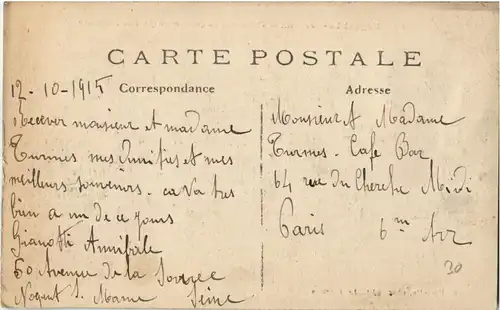 CARTE POSTALE
Correspondance
12-10-1915
Recever monsieur et madame
Turmes mes Amitiés et mes
meilleurs souvenirs. ca va tres
bien a un de ce jours
Gianotti Annibale
60 Avenue de la Source
Nogent S. Marne Seine
Adresse
Monsieur et Madame
Turmes. Cafe Bar
64 rue du Cherche Midi
Paris 6me Arr
30